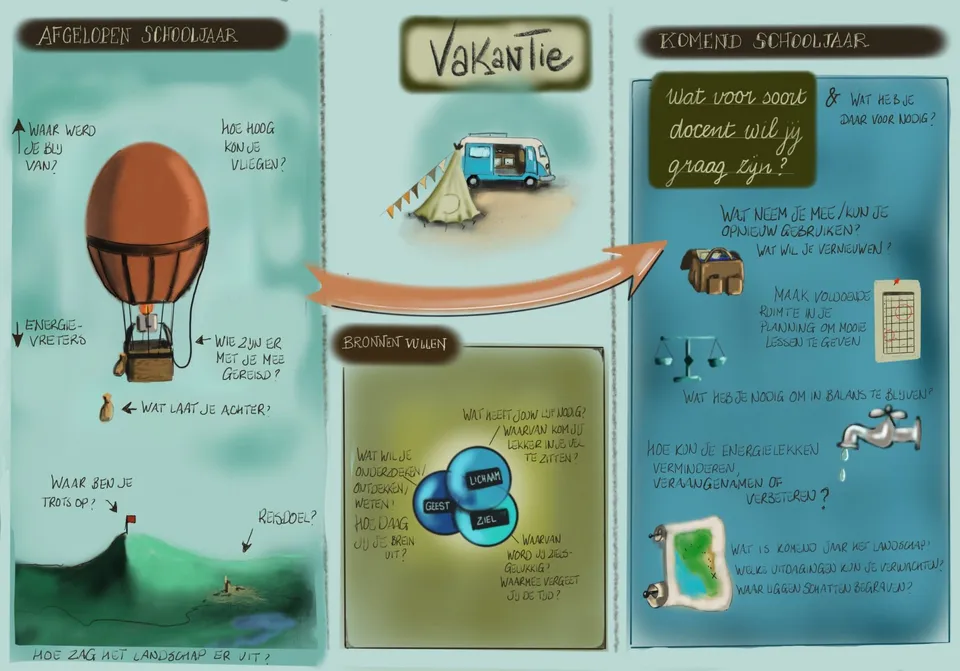 AFGELOPEN SCHOOLJAAR
WAAR WERD
JE BLIJ
VAN?
HOE HOOG
KON JE
VLIEGEN?
ENERGIE-
VRETERS
WIE ZIJN ER
MET JE MEE
GEREISD?
WAT LAAT JE ACHTER?
WAAR BEN JE
TROTS OP?
REISDOEL?
HOE ZAG HET LANDSCHAP ER UIT?
VAKANTIE
BRONNEN VULLEN
WAT HEEFT JOUW LIJF NODIG?
WAARVAN KOM JIJ
LEKKER IN JE VEL
TE ZITTEN?
WAT WIL JE
ONDERZOEKEN/
ONTDEKKEN/
WETEN?
HOE DAAG
JIJ JE BREIN
UIT?
LICHAAM
GEEST
ZIEL
WAARVAN
WORD JIJ ZIELS-
GELUKKIG?
WAARMEE VERGEET
JIJ DE TIJD?
KOMEND SCHOOLJAAR
Wat voor soort
docent wil jij
graag zijn?
& WAT HEB JE
DAAR VOOR NODIG?
WAT NEEM JE MEE/KUN JE
OPNIEUW GEBRUIKEN?
WAT WIL JE VERNIEUWEN?
MAAK VOLDOENDE
RUIMTE IN JE
PLANNING OM MOOIE
LESSEN TE GEVEN
WAT HEB JE NODIG OM IN BALANS TE BLIJVEN?
HOE KUN JE ENERGIELEKKEN
VERMINDEREN,
VERAANGENAMEN OF
VERBETEREN?
WAT IS KOMEND JAAR HET LANDSCHAP?
WELKE UITDAGINGEN KUN JE VERWACHTEN?
WAAR LIGGEN SCHATTEN BEGRAVEN?